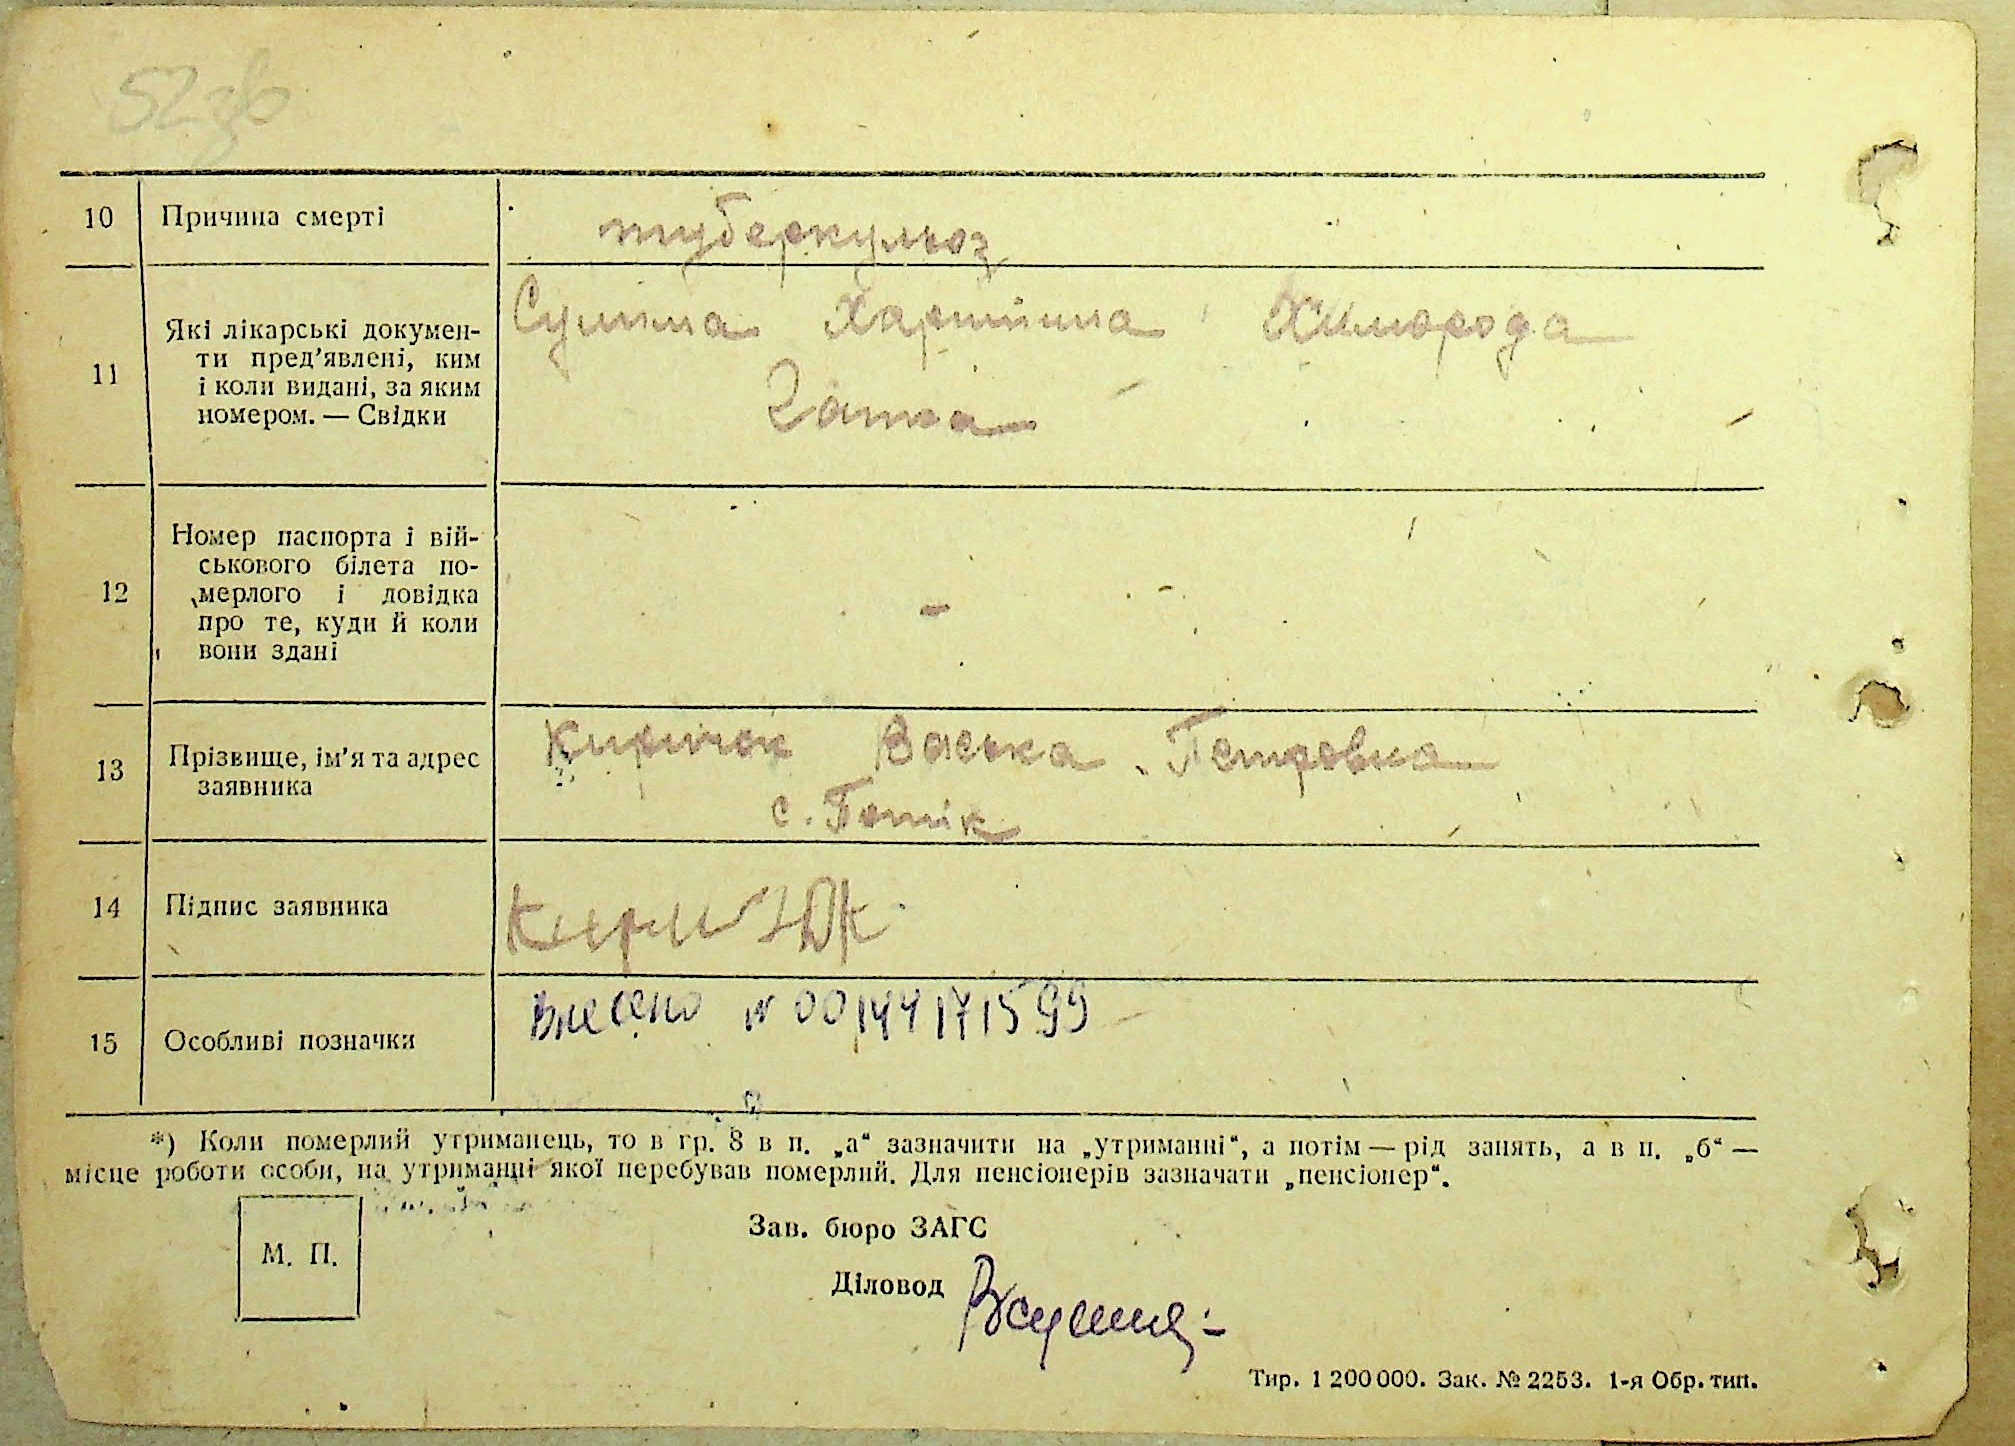 52зв
10 Причина смерті туберкульоз
11 Які лікарські докумен-
ти пред’явлені, ким
і коли видані, за яким
номером. — Свідки
Сулима Хартина
Ганна
12 Номер паспорта і вій-
ськового білета по-
мерлого і довідка
про те, куди й коли
вони здані
-
13 Прізвище, ім’я та адрес
заявника
Киричок Васька Петровна
с. Потік
14 Підпис заявника
15 Особливі позначки
Внесено № 00144171599
*) Коли померлий утриманець, то в гр. 8 в п. „а“ зазначити на „утриманні“, а потім — рід занять, а в п. „б“ —
місце роботи особи, на утриманні якої перебував померлий. Для пенсіонерів зазначати „пенсіонер“.
М. П.
Зав. бюро ЗАГС
Діловод
Тир. 1 200 000. Зак. № 2253. 1-я Обр. тип.